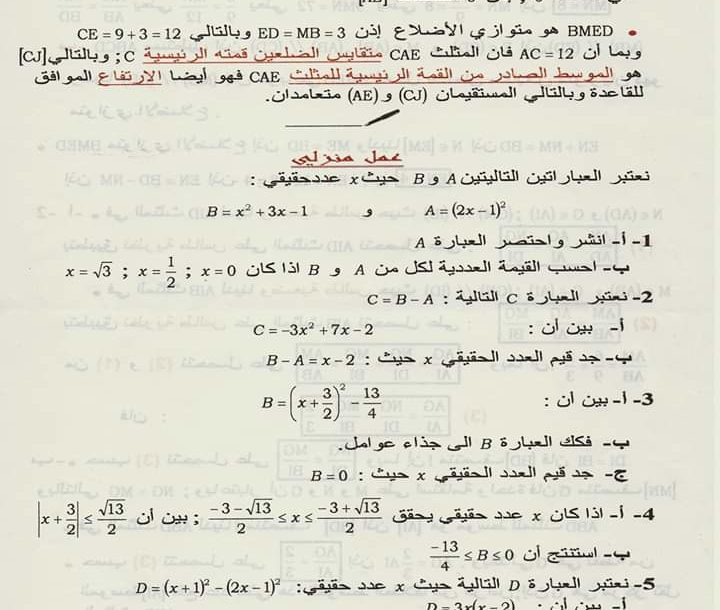 • BMED هو متوازي الأضلاع إذن ED = MB = 3 وبالتالي CE = 9 + 3 = 12
وبما أن AC = 12 فان المثلث CAE متقايس الضلعين قمته الرئيسية C; وبالتالي [CJ]
هو الموسط الصادر من القمة الرئيسية للمثلث CAE فهو أيضا الارتفاع الموافق
للقاعدة وبالتالي المستقيمان (CJ) و (AE) متعامدان.
عمل منزلي
نعتبر العبارتين التاليتين A و B حيث x عدد حقيقي :
A = (2x – 1)² و B = x² + 3x – 1
1- أ- انشر واختصر العبارة A
ب- احسب القيمة العددية لكل من A و B اذا كان x = 0 ; x = 1/2 ; x = √3
2- نعتبر العبارة C التالية : C = B – A
أ- بين أن : C = –3x² + 7x – 2
ب- جد قيم العدد الحقيقي x حيث : B – A = x – 2
3- أ- بين أن : B = (x + 3/2)² – 13/4
ب- فكك العبارة B الى جذاء عوامل.
ج- جد قيم العدد الحقيقي x حيث : B = 0
4- أ- اذا كان x عدد حقيقي يحقق (–3 – √13)/2 ≤ x ≤ (–3 + √13)/2 ; بين أن |x + 3/2| ≤ √13/2
ب- استنتج أن –13/4 ≤ B ≤ 0
5- نعتبر العبارة D التالية حيث x عدد حقيقي: D = (x + 1)² – (2x – 1)²